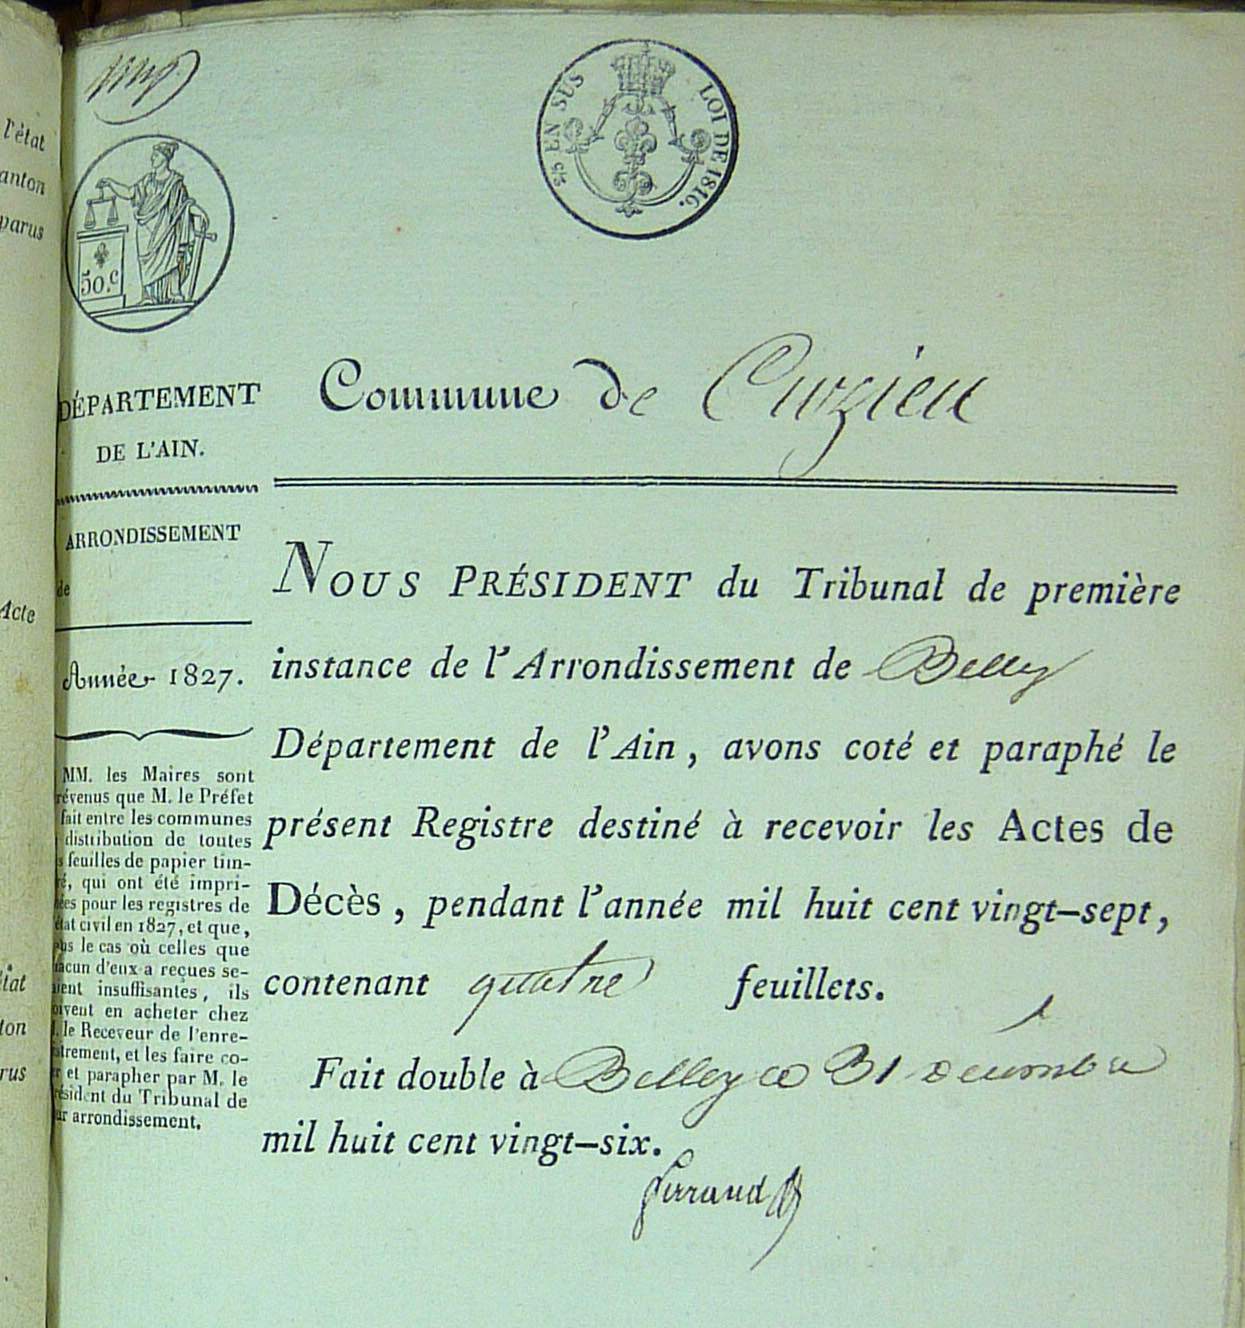 l'état
anton
parus
Acte
état
ton
rus
EN SUS
LOI DE 1816.
50.c
DÉPARTEMENT
DE L'AIN.
ARRONDISSEMENT
de
Année 1827.
MM. les Maires sont
révenus que M. le Préfet
fait entre les communes
distribution de toutes
s feuilles de papier tim-
ré, qui ont été impri-
ées pour les registres de
état civil en 1827, et que,
ns le cas où celles que
acun d'eux a reçues se-
aient insuffisantes, ils
oivent en acheter chez
. le Receveur de l'enre-
istrement, et les faire co-
er et parapher par M. le
résident du Tribunal de
ur arrondissement.
Commune de Cuzieu
NOUS PRÉSIDENT du Tribunal de première
instance de l'Arrondissement de Belley
Département de l'Ain, avons coté et paraphé le
présent Registre destiné à recevoir les Actes de
Décès, pendant l'année mil huit cent vingt-sept,
contenant quatre feuillets.
Fait double à Belley ce 31 décembre
mil huit cent vingt-six.